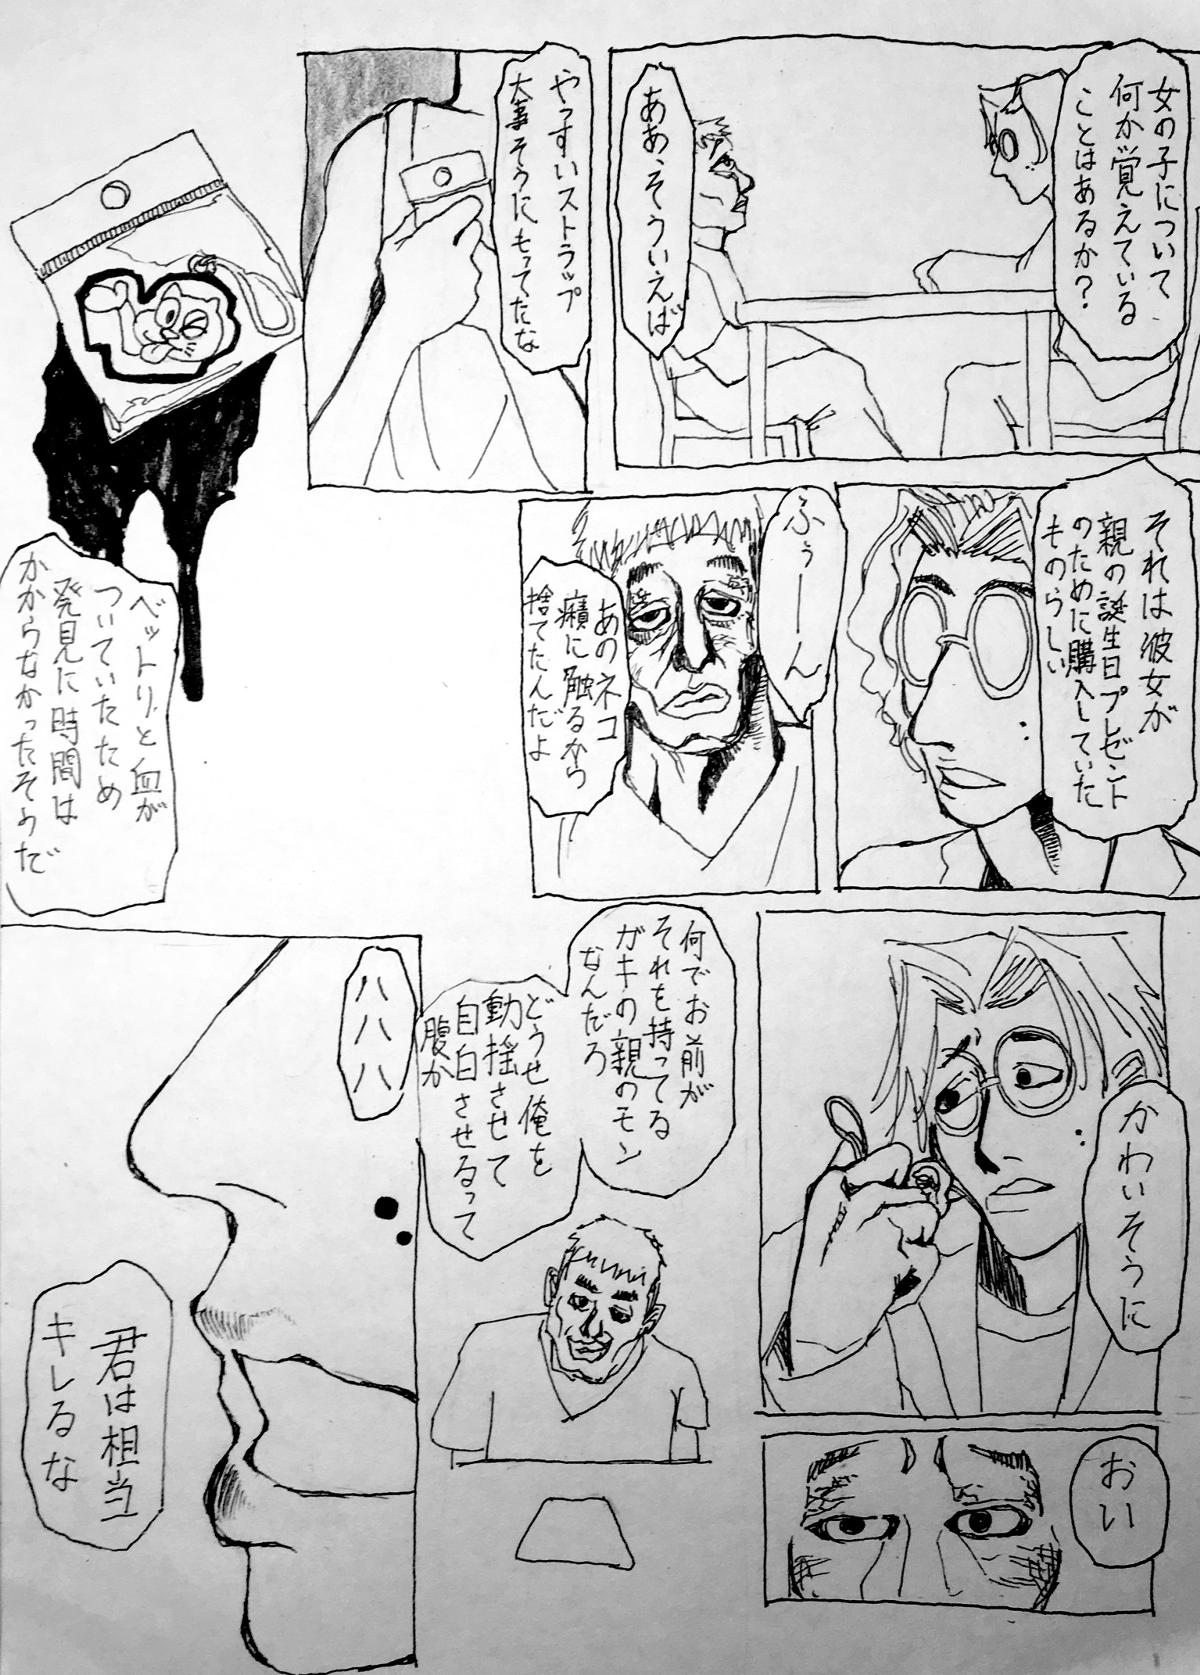 女の子について
何か覚えている
ことはあるか？
ああ、そういえば
やっすいストラップ
大事そうにもってたな
それは彼女が
親の誕生日プレゼント
のために購入していた
ものらしい
ふぅーん
あのネコ
癪に触るから
捨てたんだよ
ベットリと血が
ついていたため
発見に時間は
かからなかったそうだ
かわいそうに
おい
何でお前が
それを持ってる
ガキの親のモン
なんだろ
どうせ俺を
動揺させて
自白させるって
腹か
ハハハ
君は相当
キレるな